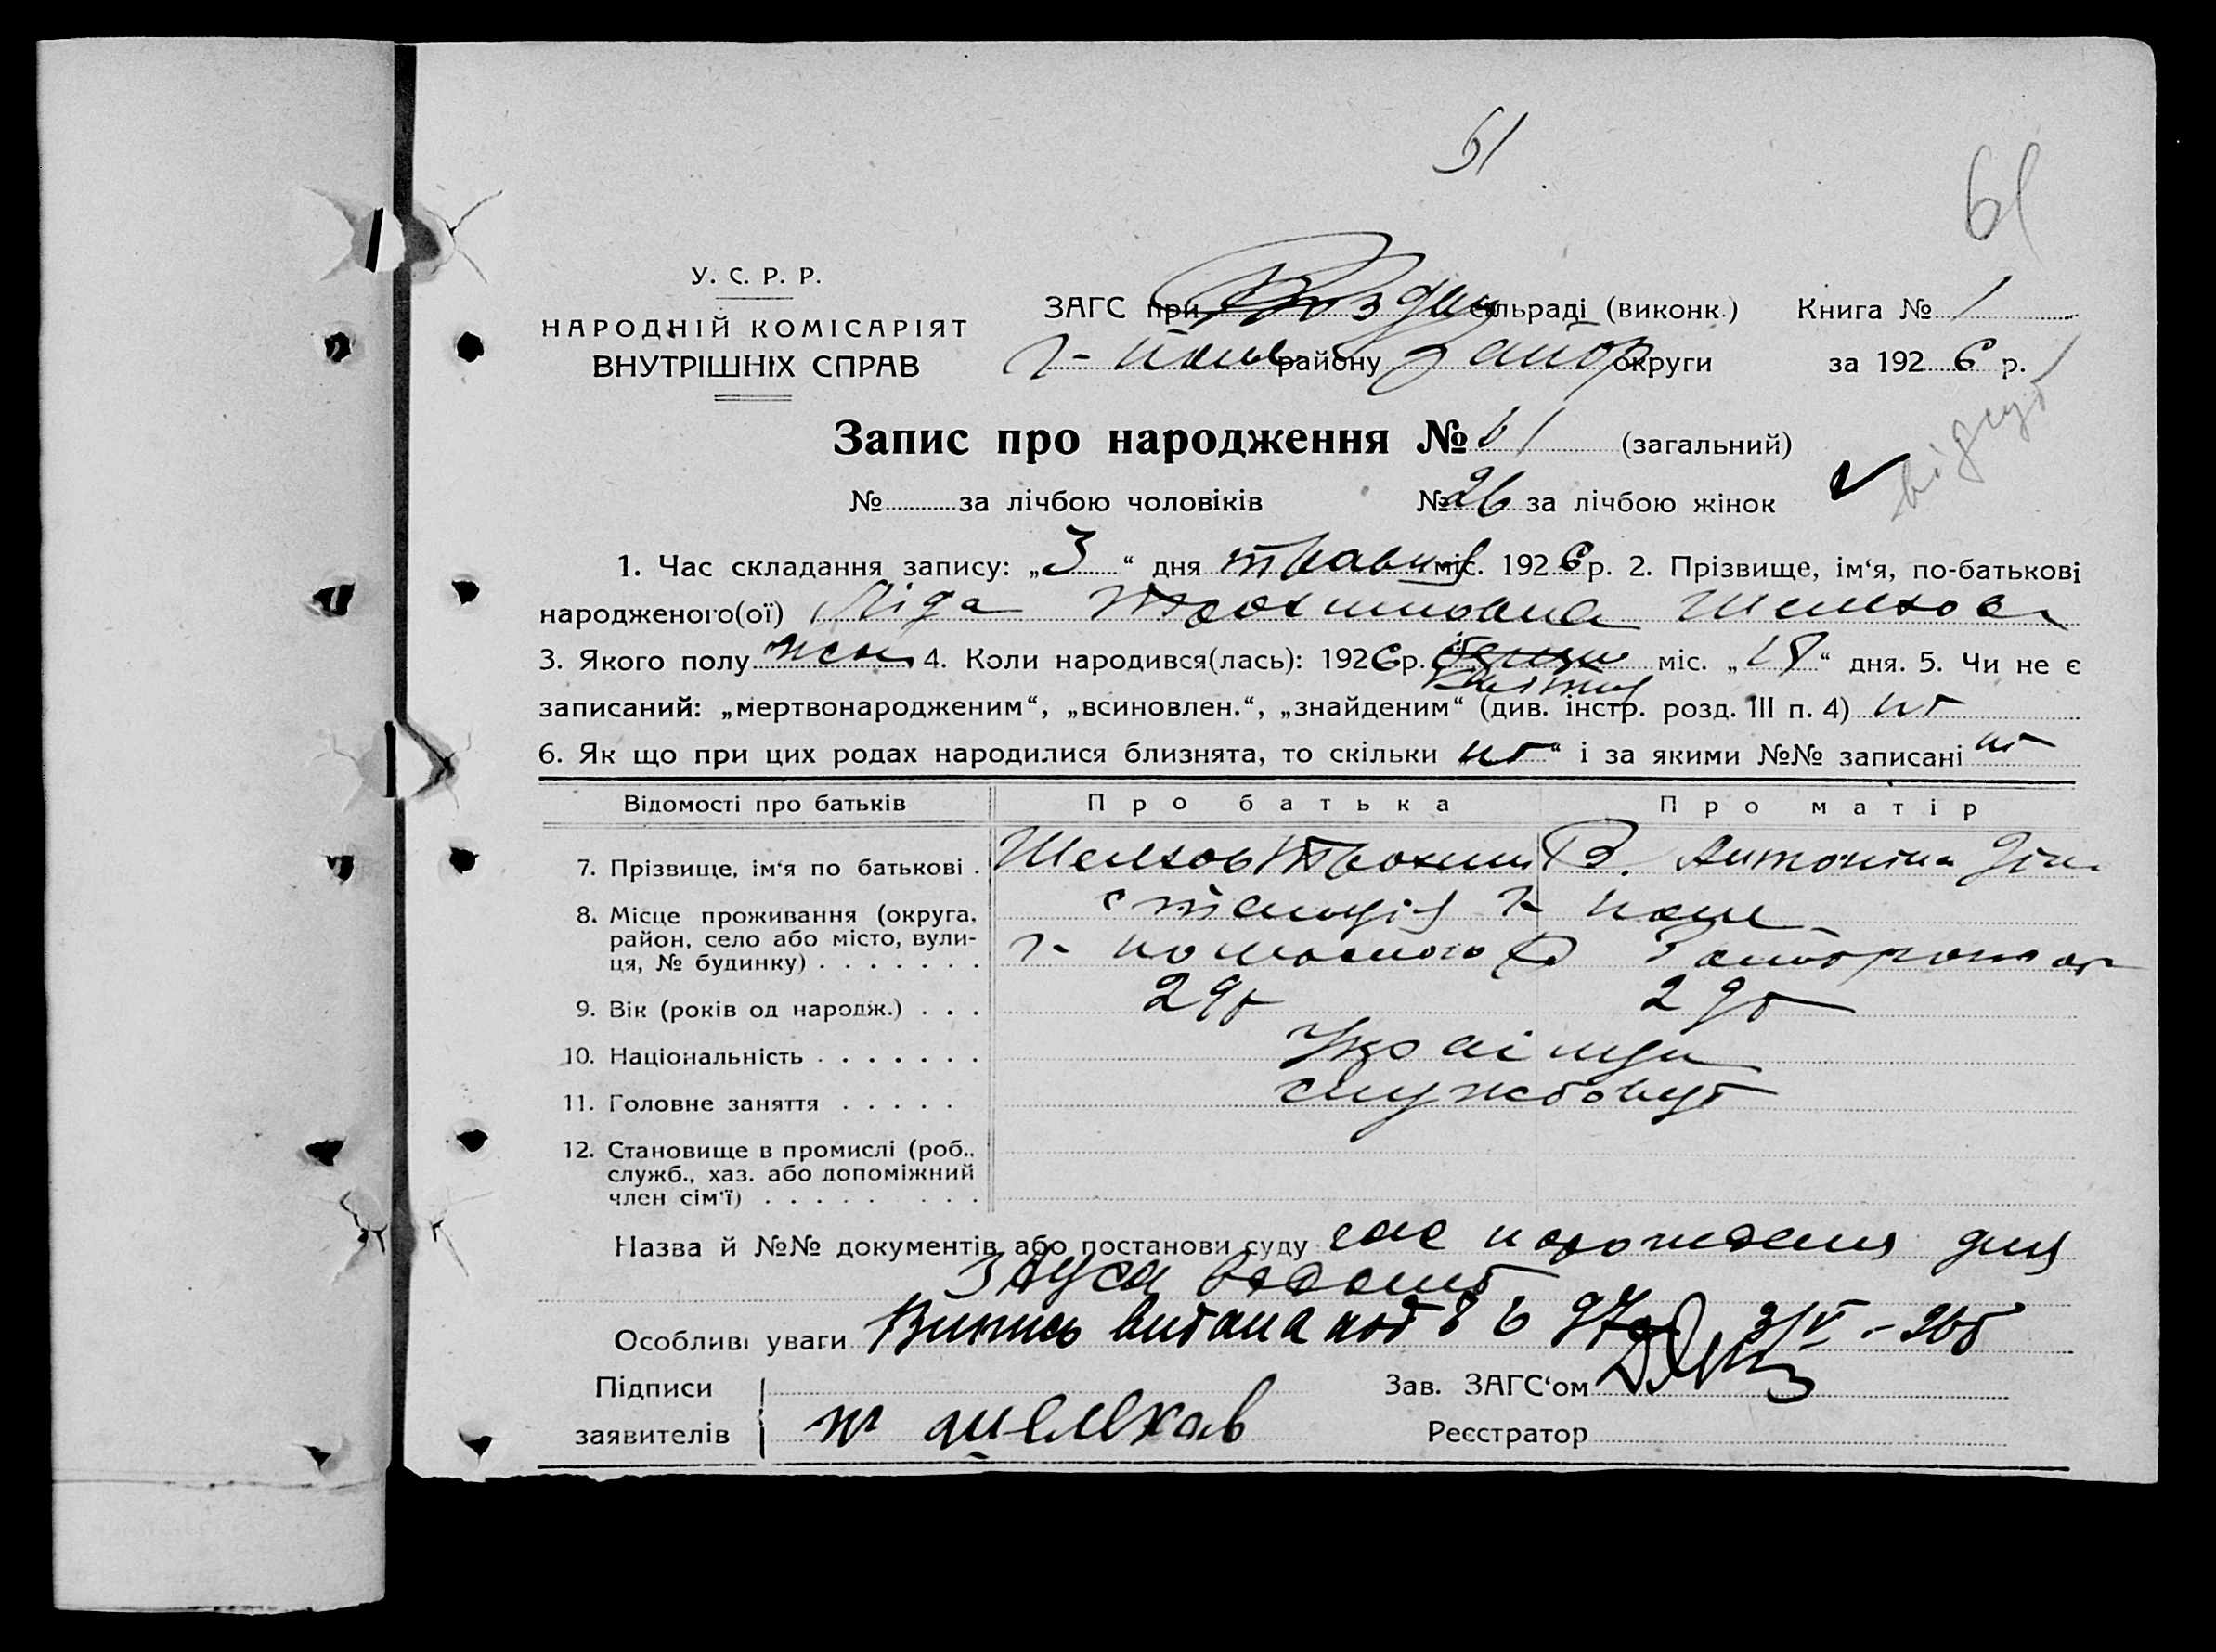 61
61
У. С. Р. Р.
НАРОДНІЙ КОМІСАРІЯТ
ВНУТРІШНІХ СПРАВ
ЗАГС при сільраді (виконк.) Книга № 1
району Запор округи за 1926 р.
Запис про народження № 61 (загальний)
№ за лічбою чоловіків № 26 за лічбою жінок
1. Час складання запису: „3“ дня травня міс. 1926 р. 2. Прізвище, ім‘я, по-батькові
народженого(ої) Ліда Трохимовна Шелхов
3. Якого полу жен 4. Коли народився(лась): 1926 р. квітня міс. „18“ дня. 5. Чи не є
записаний: „мертвонародженим“, „всиновлен.“, „знайденим“ (див. інстр. розд. III п. 4) нт
6. Як що при цих родах народилися близнята, то скільки „нт“ і за якими №№ записані нт
Відомості про батьків Про батька Про матір
7. Прізвище, ім‘я по батькові . Шелхов Трохим Антоніна
8. Місце проживання (округа, станція
район, село або місто, вули-
ця, № будинку) . . . . . . .
9. Вік (років од народж.) . . . 29 р 29 р
10. Національність . . . . . . . Українці
11. Головне заняття . . . . . службовут
12. Становище в промислі (роб.,
служб., хаз. або допоміжний
член сім‘ї) . . . . . . . .
Назва й №№ документів або постанови суду
Особливі уваги Випись видана 97 3/V - 26 р
Підписи Зав. ЗАГС‘ом
заявителів т шелехов Реєстратор